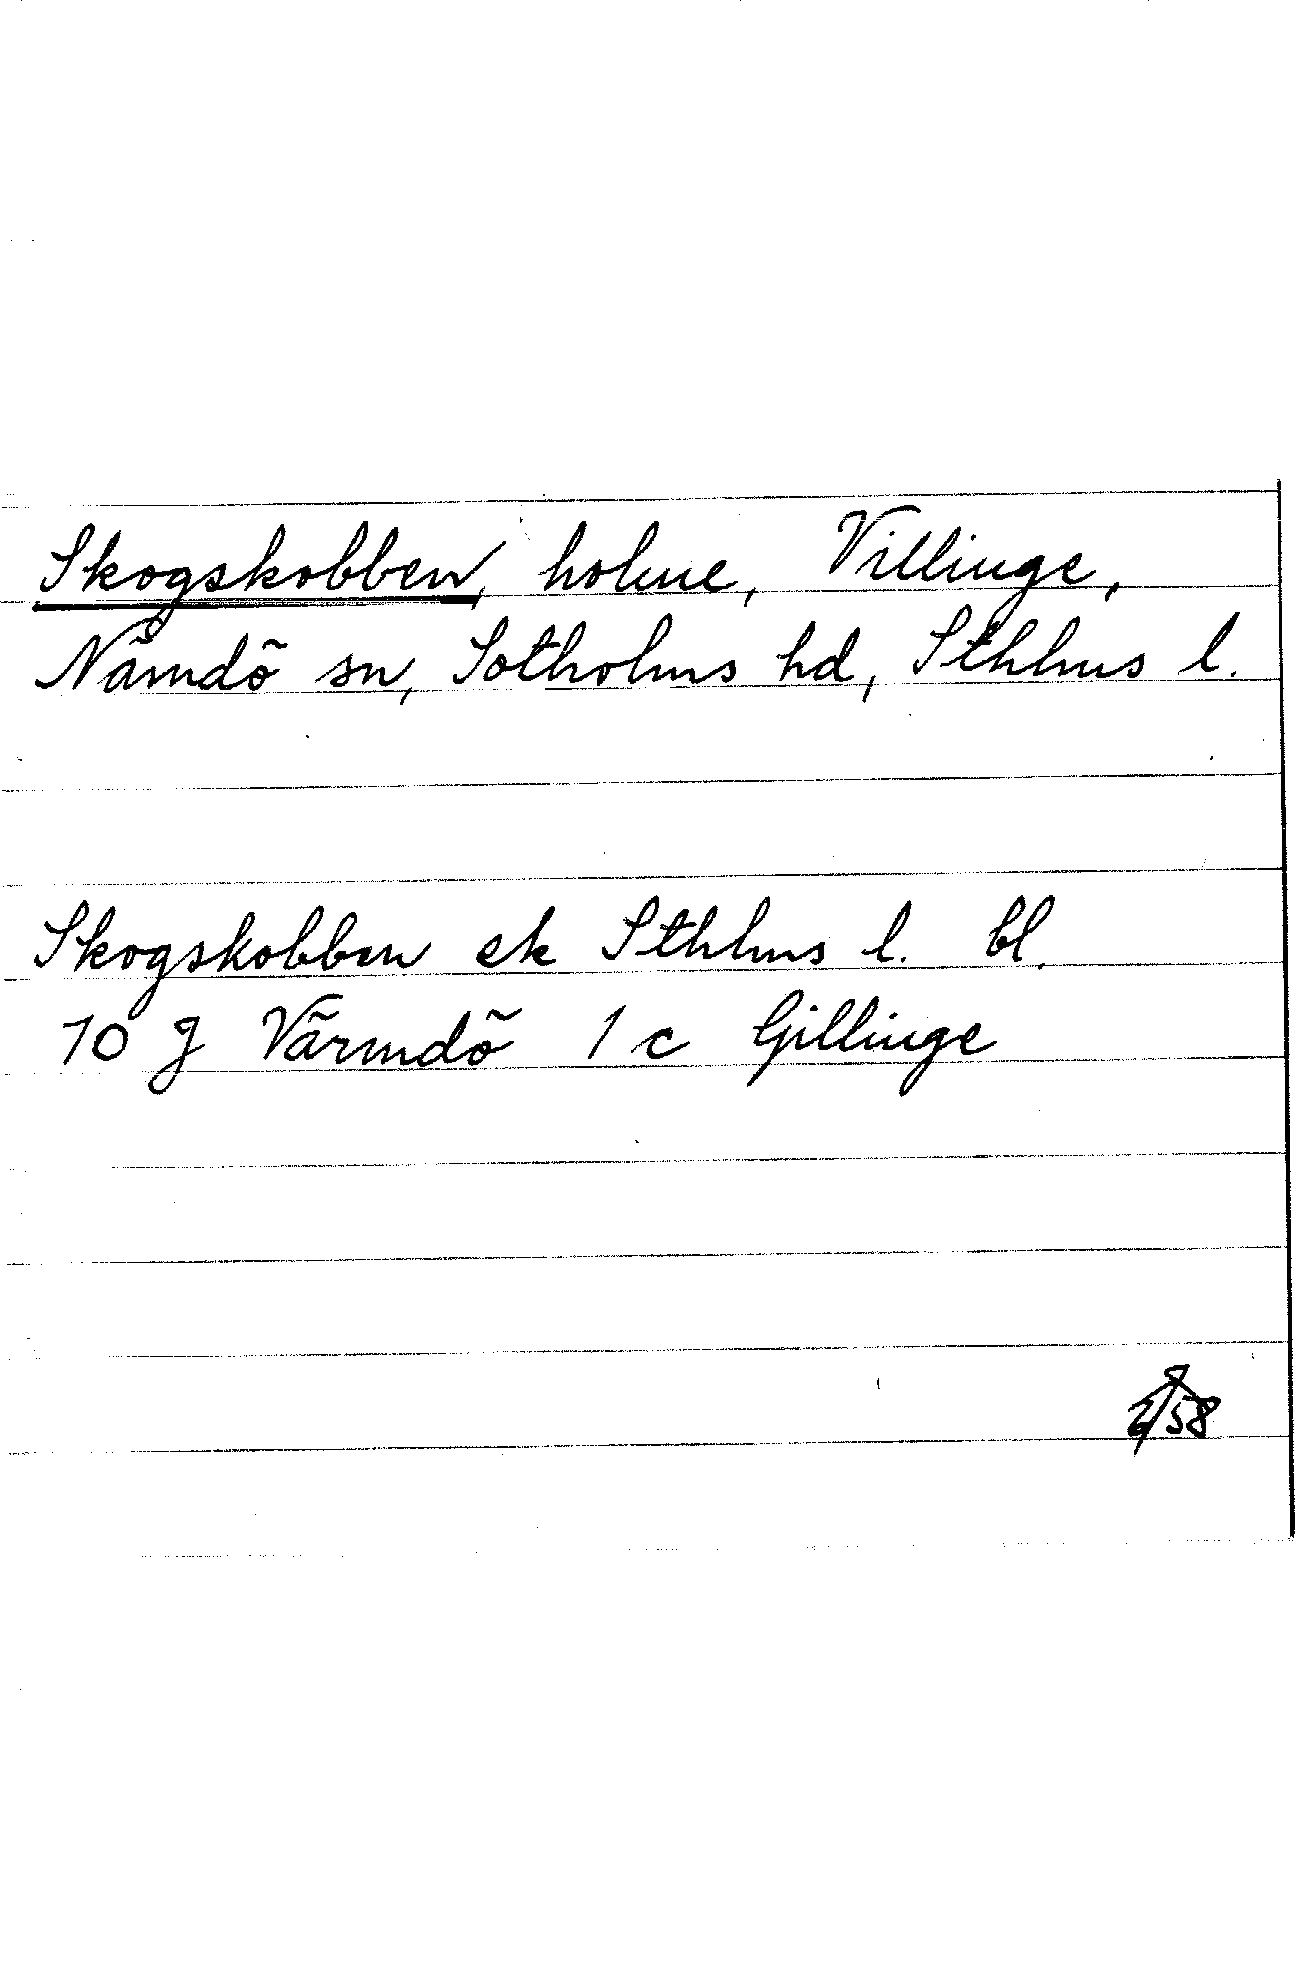 Skogskobben, holme, Villinge,
Nämdö sn, Sotholms hd, Sthlms l.
Skogskobben ek Sthlms l. bl.
10 J Värmdö 1 c Gillinge
58